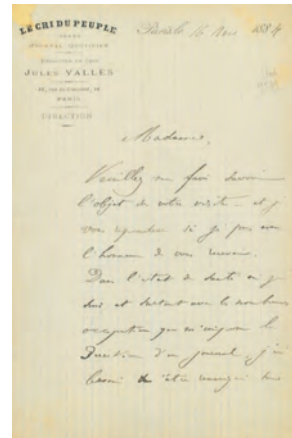 LE CRI DU PEUPLE
JOURNAL QUOTIDIEN
RÉDACTEUR EN CHEF
JULES VALLÈS
PARIS
DIRECTION
Paris le 16 1884
Madame,
Veuillez me faire savoir
l'objet de votre visite — et je
vous répondrai si je puis avoir
l'honneur de vous recevoir.
Dans l'état de santé où je
suis et surtout avec les nombreuses
occupations que m'impose la
Direction d'un journal, j'ai
besoin d'être